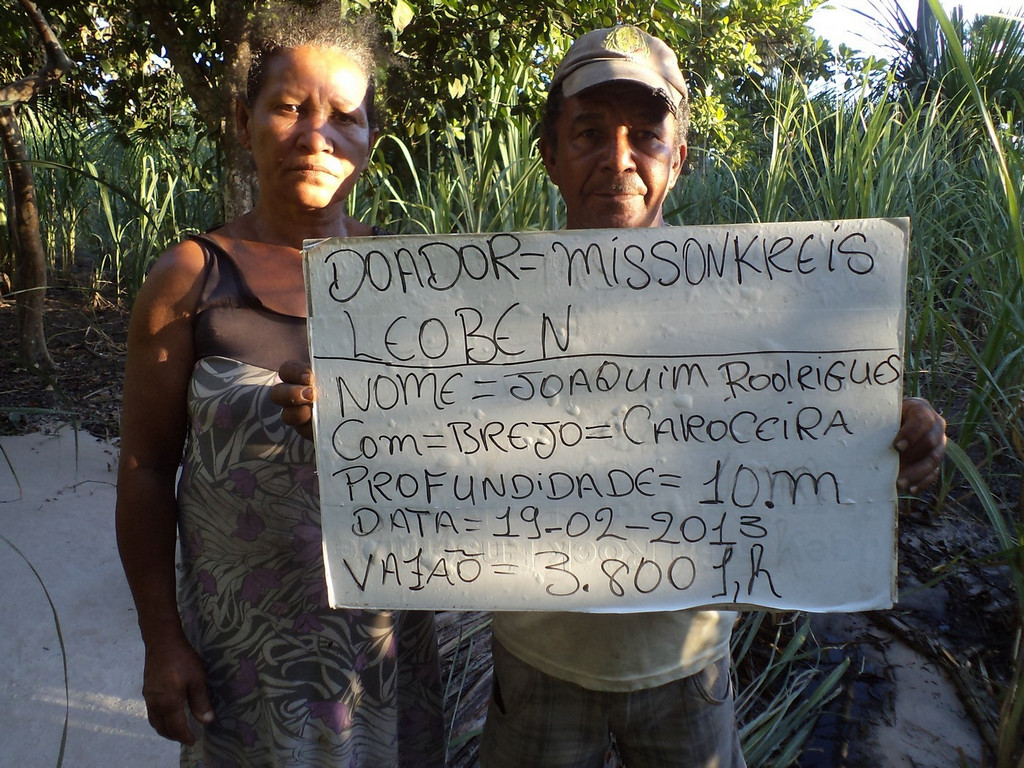 DOADOR= MISSONKREIS
LEOBEN
NOME= JOAQUIM RODRIGUES
COM=BREJO= CAROCEIRA
PROFUNDIDADE= 10.m
DATA= 19-02-2013
VAJÃO= 3.800 l,h